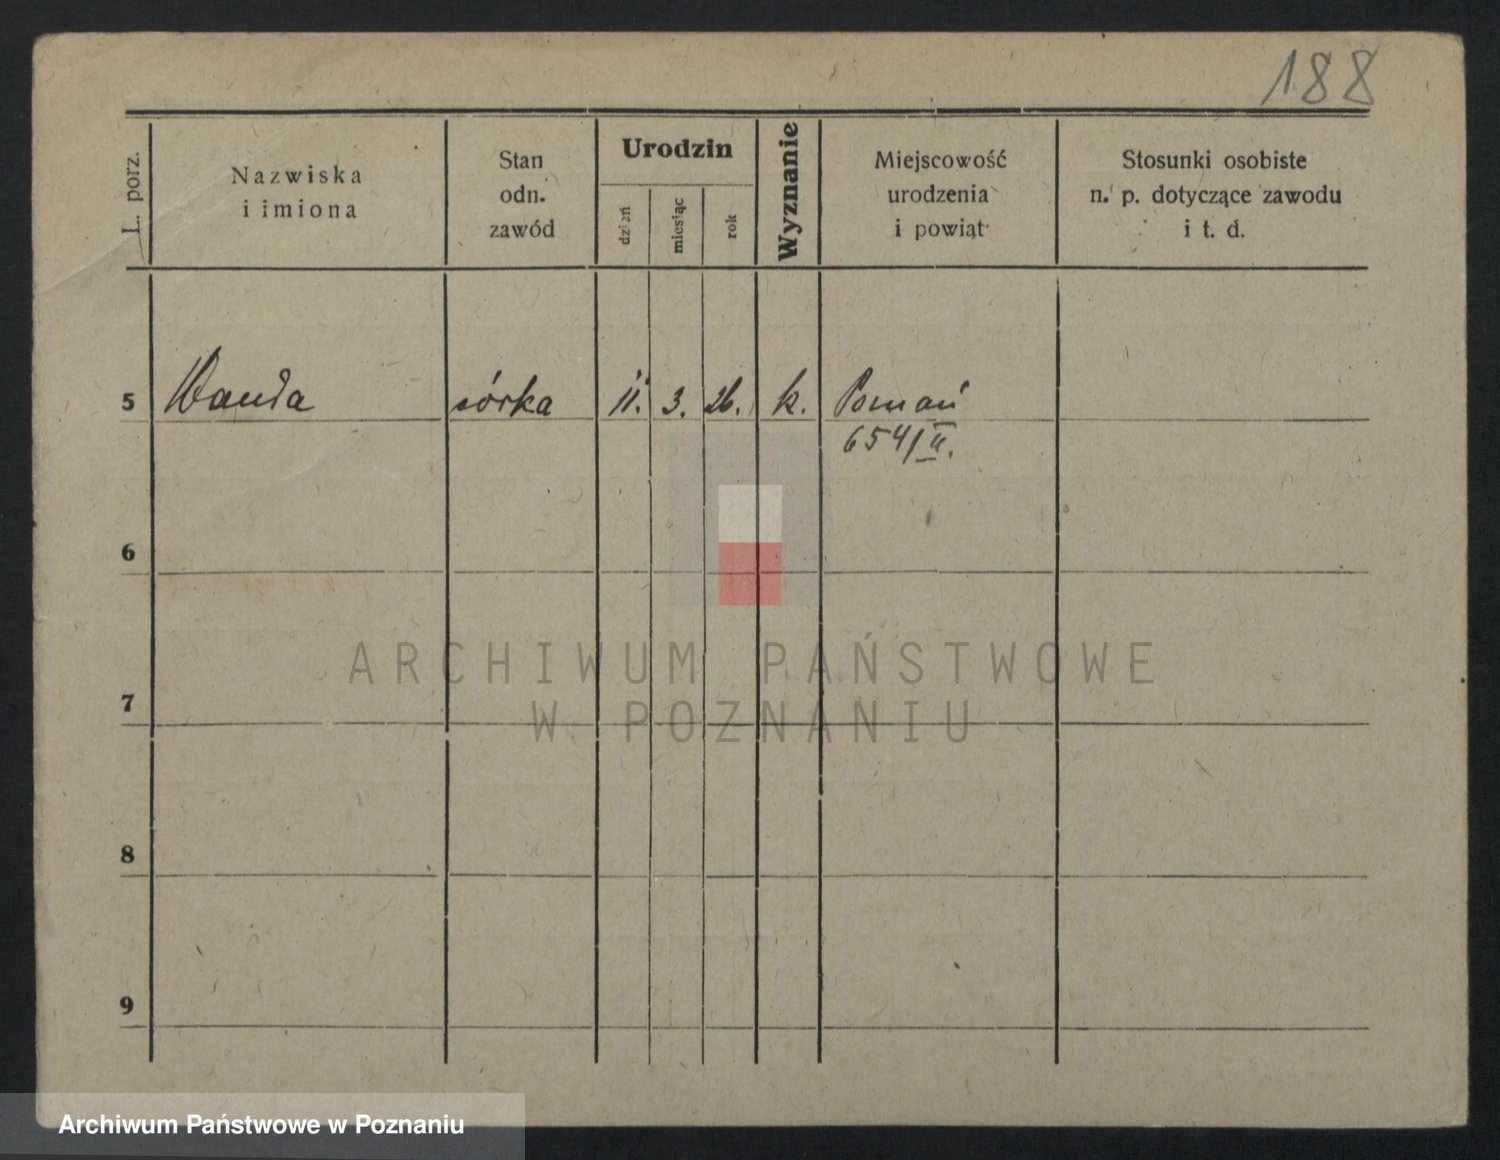 188
L. porz.
Nazwiska
i imiona
Stan
odn.
zawód
Urodzin
dzień
miesiąc
rok
Wyznanie
Miejscowość
urodzenia
i powiąt
Stosunki osobiste
n. p. dotyczące zawodu
i t. d.
5 Wanda córka 11. 3. 26. k. Poznań
654/II.
6
7
8
9
ARCHIWUM PAŃSTWOWE
W POZNANIU
Archiwum Państwowe w Poznaniu